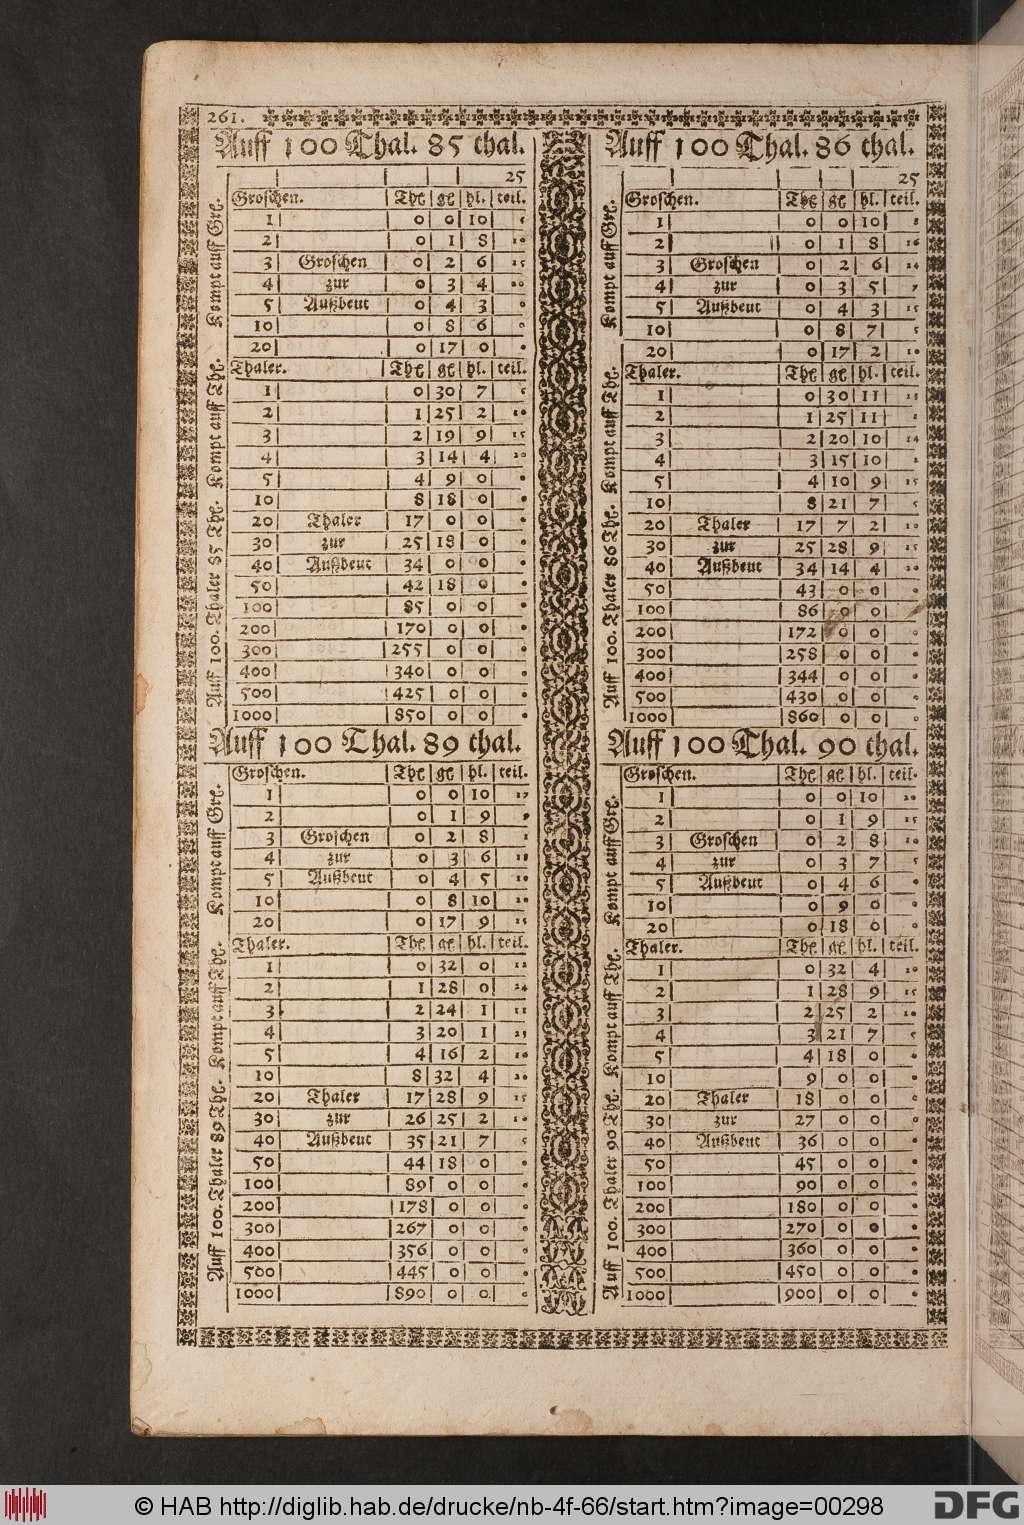 261.
Auff 100 Thal. 85 thal.
25
Groschen. Thl gl hl. teil.
1 0 0 10 5
2 0 1 8 10
3 Groschen 0 2 6 15
4 zur 0 3 4 20
5 Außbeut 0 4 3 0
10 0 8 6 0
20 0 17 0 0
Thaler. Thl gl hl. teil.
1 0 30 7 5
2 1 25 2 10
3 2 19 9 15
4 3 14 4 20
5 4 9 0 0
10 8 18 0 0
20 Thaler 17 0 0 0
30 zur 25 18 0 0
40 Außbeut 34 0 0 0
50 42 18 0 0
100 85 0 0 0
200 170 0 0 0
300 255 0 0 0
400 340 0 0 0
500 425 0 0 0
1000 850 0 0 0
Auff 100. Thaler 85 Thl. Kompt auff Thl. Kompt auff Grl.
Auff 100 Thal. 86 thal.
25
Groschen. Thl gl hl. teil.
1 0 0 10 8
2 0 1 8 16
3 Groschen 0 2 6 24
4 zur 0 3 5 7
5 Außbeut 0 4 3 15
10 0 8 7 5
20 0 17 2 10
Thaler. Thl gl hl. teil.
1 0 30 11 13
2 1 25 11 1
3 2 20 10 14
4 3 15 10 2
5 4 10 9 15
10 8 21 7 5
20 Thaler 17 7 2 10
30 zur 25 28 9 15
40 Außbeut 34 14 4 20
50 43 0 0 0
100 86 0 0
200 172 0 0 0
300 258 0 0 0
400 344 0 0 0
500 430 0 0 0
1000 860 0 0 0
Auff 100. Thaler 86 Thl. Kompt auff Thl. Kompt auff Grl.
Auff 100 Thal. 89 thal.
Groschen. Thl gl hl. teil.
1 0 0 10 17
2 0 1 9 9
3 Groschen 0 2 8 1
4 zur 0 3 6 18
5 Außbeut 0 4 5 10
10 0 8 10 20
20 0 17 9 15
Thaler. Thl gl hl. teil.
1 0 32 0 12
2 1 28 0 24
3 2 24 1 11
4 3 20 1 23
5 4 16 2 10
10 8 32 4 20
20 Thaler 17 28 9 15
30 zur 26 25 2 10
40 Außbeut 35 21 7 5
50 44 18 0 0
100 89 0 0 0
200 178 0 0 0
300 267 0 0 0
400 356 0 0 0
500 445 0 0 0
1000 890 0 0 0
Auff 100. Thaler 89 Thl. Kompt auff Thl. Kompt auff Grl.
Auff 100 Thal. 90 thal.
Groschen. Thl gl hl. teil.
1 0 0 10 20
2 0 1 9 15
3 Groschen 0 2 8 10
4 zur 0 3 7 5
5 Außbeut 0 4 6 0
10 0 9 0 0
20 0 18 0 0
Thaler. Thl gl hl. teil.
1 0 32 4 20
2 1 28 9 15
3 2 25 2 10
4 3 21 7 5
5 4 18 0 0
10 9 0 0 0
20 Thaler 18 0 0 0
30 zur 27 0 0 0
40 Außbeut 36 0 0 0
50 45 0 0 0
100 90 0 0 0
200 180 0 0 0
300 270 0 0 0
400 360 0 0 0
500 450 0 0 0
1000 900 0 0 0
Auff 100. Thaler 90 Thl. Kompt auff Thl. Kompt auff Grl.
© HAB http://diglib.hab.de/drucke/nb-4f-66/start.htm?image=00298
DFG